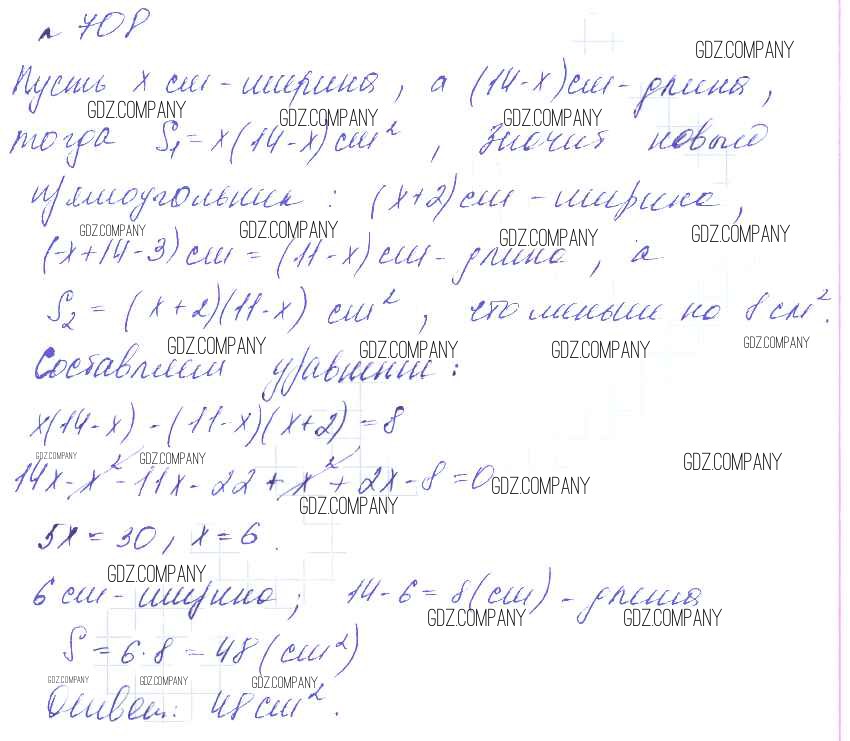 № 708
GDZ.COMPANY
Пусть x см - ширина, а (14-x) см - длина,
GDZ.COMPANY GDZ.COMPANY GDZ.COMPANY
тогда S₁ = x(14-x) см², значит новый
прямоугольник: (x+2) см - ширина,
GDZ.COMPANY GDZ.COMPANY GDZ.COMPANY GDZ.COMPANY
(-x+14-3) см = (11-x) см - длина, а
S₂ = (x+2)(11-x) см², что меньше на 8 см².
GDZ.COMPANY GDZ.COMPANY GDZ.COMPANY GDZ.COMPANY
Составляем уравнение:
x(14-x) - (11-x)(x+2) = 8
GDZ.COMPANY GDZ.COMPANY GDZ.COMPANY
14x - x² - 11x - 22 + x² + 2x - 8 = 0
GDZ.COMPANY
GDZ.COMPANY
5x = 30, x = 6.
GDZ.COMPANY
6 см - ширина; 14 - 6 = 8 (см) - длина
GDZ.COMPANY GDZ.COMPANY
S = 6·8 = 48 (см²)
GDZ.COMPANY GDZ.COMPANY GDZ.COMPANY
Ответ: 48 см².